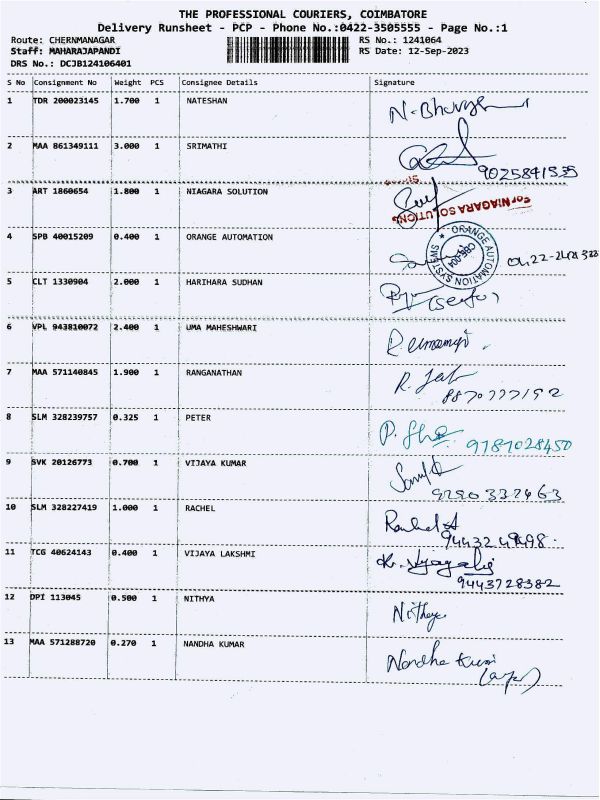 THE PROFESSIONAL COURIERS, COIMBATORE
Delivery Runsheet - PCP - Phone No.:0422-3505555 - Page No.:1
Route: CHERNMANAGAR RS No.: 1241064
Staff: MAHARAJAPANDI RS Date: 12-Sep-2023
DRS No.: DCJB124106401
S No Consignment No Weight PCS Consignee Details Signature
1 TDR 200023145 1.700 1 NATESHAN
2 MAA 861349111 3.000 1 SRIMATHI
9025841535
3 ART 1860654 1.800 1 NIAGARA SOLUTION
For NIAGARA SOLUTIONS
4 SPB 40015209 0.400 1 ORANGE AUTOMATION
ORANGE AUTOMATION SYSTEMS
CBE-004
5 CLT 1330904 2.000 1 HARIHARA SUDHAN
6 VPL 943810072 2.400 1 UMA MAHESHWARI
7 MAA 571140845 1.900 1 RANGANATHAN
8870777192
8 SLM 328239757 0.325 1 PETER
9787028450
9 SVK 20126773 0.700 1 VIJAYA KUMAR
10 SLM 328227419 1.000 1 RACHEL
Rachel A
11 TCG 40624143 0.400 1 VIJAYA LAKSHMI
9443728382
12 DPI 113045 0.500 1 NITHYA
Nithya
13 MAA 571288720 0.270 1 NANDHA KUMAR
Nandha Kumar